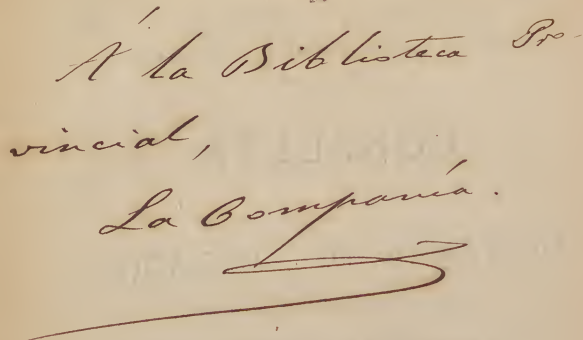 Á la Biblioteca Pro-
vincial,
La Compañía.